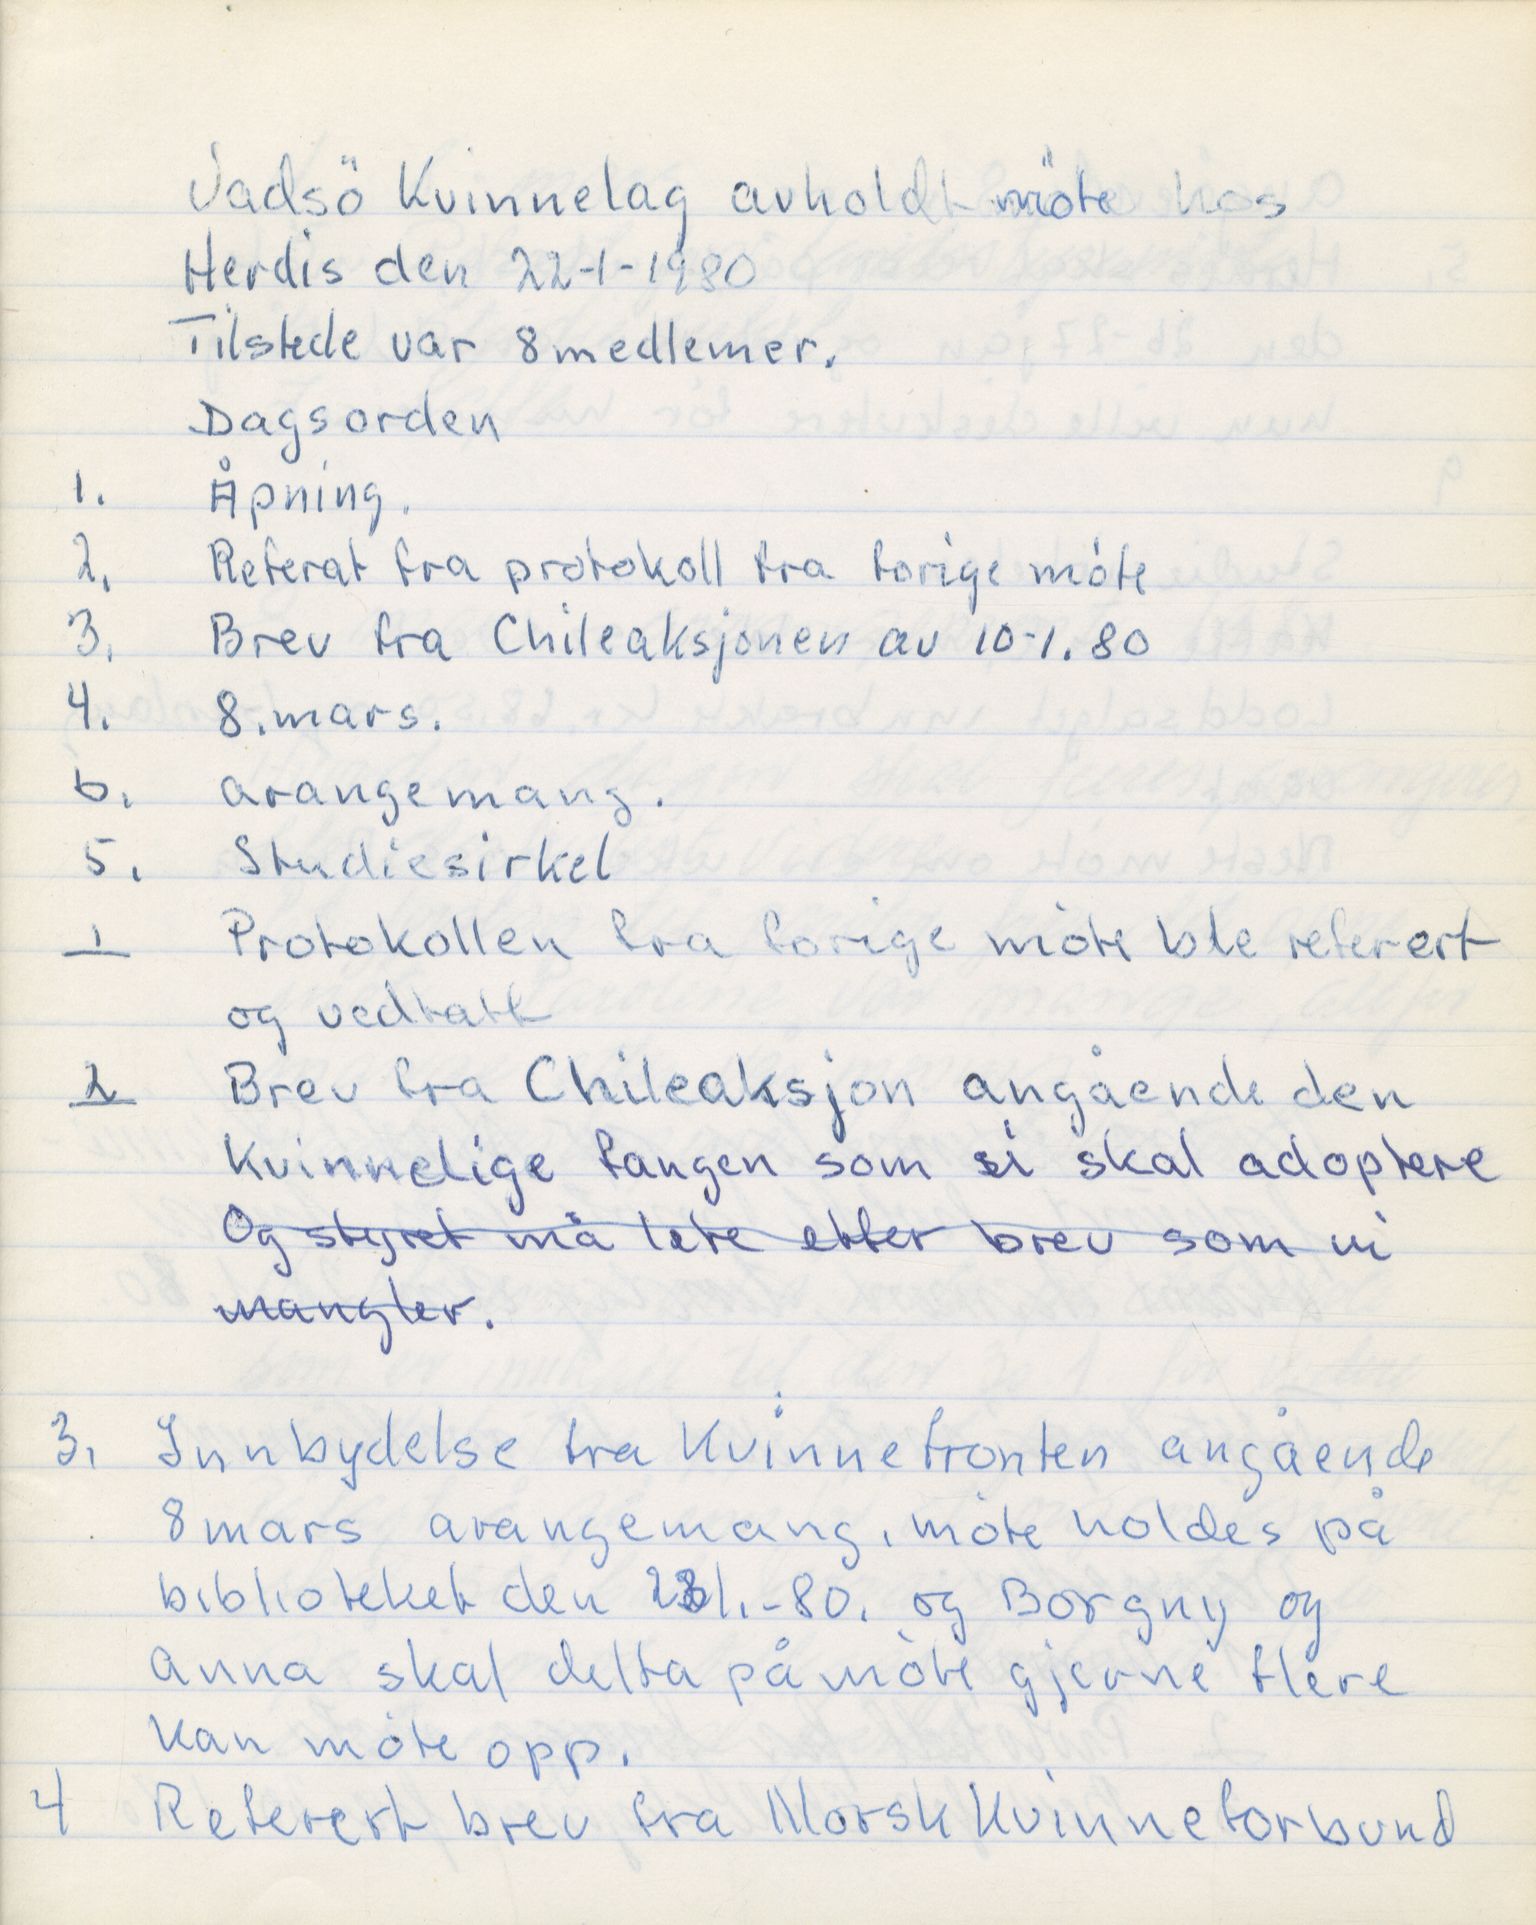 Vadsö Kvinnelag avholdt möte hos
Herdis den 22-1-1980
Tilstede var 8 medlemer.
Dagsorden
1. Åpning.
2. Referat fra protokoll fra forige móte
3. Brev fra Chileaksjonen av 10-1.80
4. 8.mars.
b. arangemang.
5. Studiesirkel
1 Protokollen fra forige móte ble referert
og vedtatt
2 Brev fra Chileaksjon angående den
Kvinnelige fangen som vi skal adoptere
Og styret må lete etter brev som vi
mangler.
3. Innbydelse fra Kvinnefronten angående
8 mars arangemang, móte holdes på
biblioteket den /1.-80. og Borgny og
Anna skal delta på móte gjerne flere
kan móte opp.
4 Referert brev fra Norsk Kvinneforbund